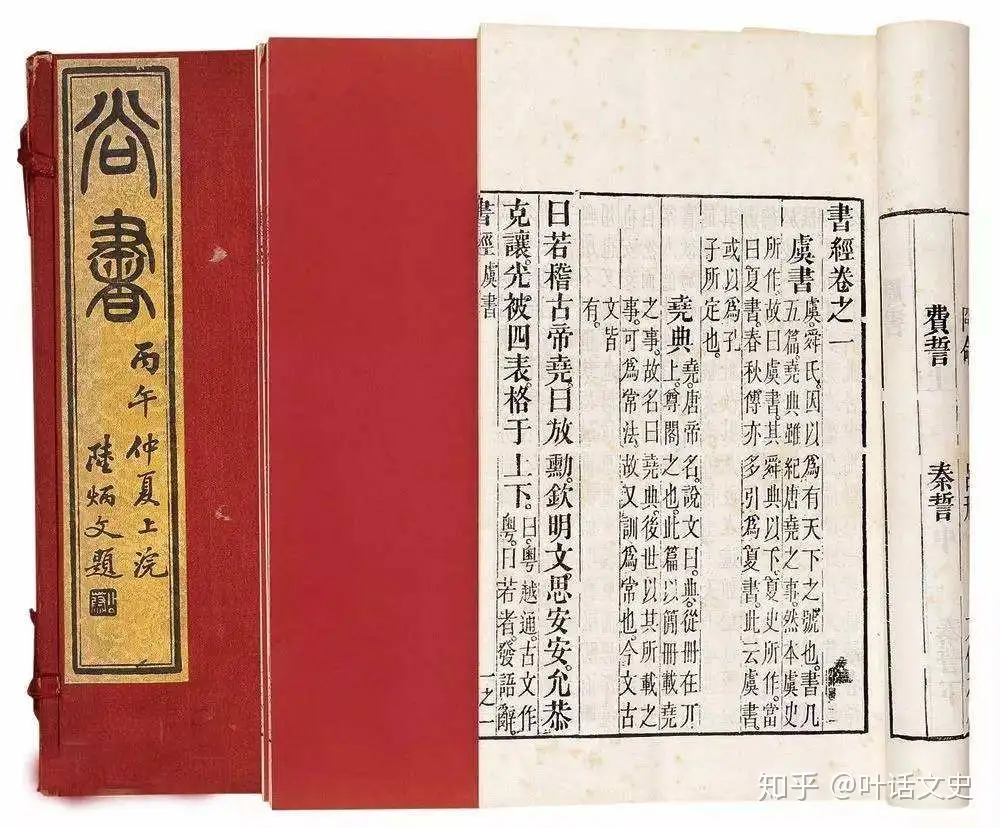 尚書
丙午仲夏上浣
陸炳文題
費誓
秦誓
書經卷之一
虞書
虞。舜氏。因以爲有天下之號也。書凡
五篇。堯典雖紀唐堯之事。然本虞史
所作。故曰虞書。其舜典以下。夏史所作。當
曰夏書。春秋傳亦多引爲夏書。此云虞書。
或以爲孔
子所定也。
堯典
堯。唐帝名。說文曰。典。從冊在丌
上。尊閣之也。此篇以簡冊載堯
之事。故名曰堯典。後世以其所載之
事。可爲常法。故又訓爲常也。今文古
文皆
有。
曰若稽古帝堯。曰放勳。欽明文思安安。允恭
克讓。光被四表。格于上下。
曰。粵越通。古文作
粵。曰若者。發語辭。
書經 虞書
一之一
知乎 @叶话文史